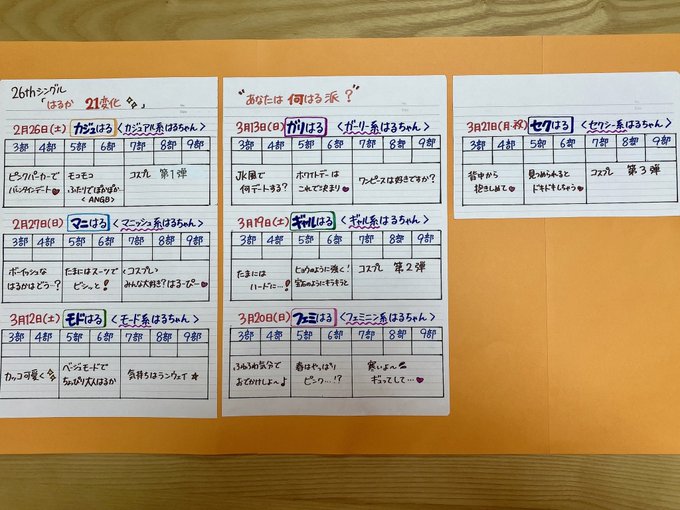 26thシングル
「はるか 21変化」
2月26日(土) カジュはる <カジュアル系はるちゃん>
3部 4部 5部 6部 7部 8部 9部
ピンクパーカーで モコモコ コスプレ 第1弾
バレンタインデート♥ ふたりでぽかぽか…
<ANGB>
2月27日(日) マニはる <マニッシュ系はるちゃん>
3部 4部 5部 6部 7部 8部 9部
ボーイッシュな たまにはスーツで <コスプレ>
はるかはどう…? ビシっと! みんな大好き?はるーぴー♥
3月12日(土) モドはる <モード系はるちゃん>
3部 4部 5部 6部 7部 8部 9部
カッコ可愛く ベージュモードで 気持ちはランウェイ★
ちょっぴり大人はるか
"あなたは 何はる派?"
3月13日(日) ガリはる <ガーリー系はるちゃん>
3部 4部 5部 6部 7部 8部 9部
JK風で ホワイトデーは ワンピースは好きですか?
何デートする? これで決まり♥
3月19日(土) ギャルはる <ギャル系はるちゃん>
3部 4部 5部 6部 7部 8部 9部
たまには ヒョウのように強く! コスプレ 第2弾
ハードに…! 宝石のようにキラキラと
3月20日(日) フェミはる <フェミニン系はるちゃん>
3部 4部 5部 6部 7部 8部 9部
ふわふわ気分で 春はやっぱり 寒いよ〜
おでかけしよ〜♪ ピンク…!? ギュってして…♥
3月21日(月・祝) セクはる <セクシー系はるちゃん>
3部 4部 5部 6部 7部 8部 9部
背中から 見つめられると コスプレ 第3弾
抱きしめて♥ ドキドキしちゃう♥